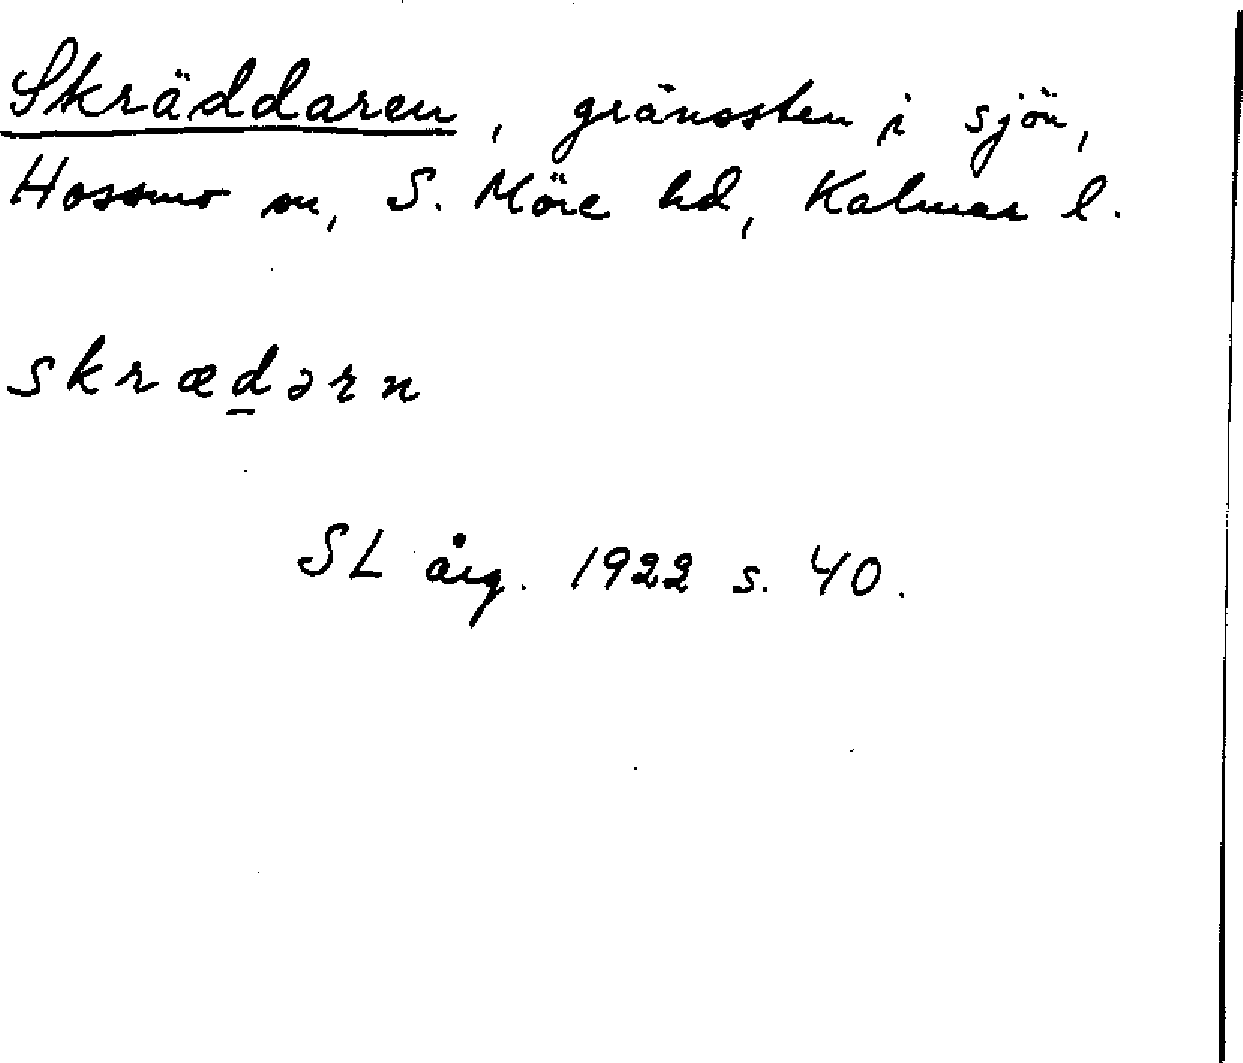 Skräddaren, gränssten i sjön,
Hossmo sn, S. Möre hd, Kalmar l.
skræd̲ərn
SL årg. 1922 s. 40.